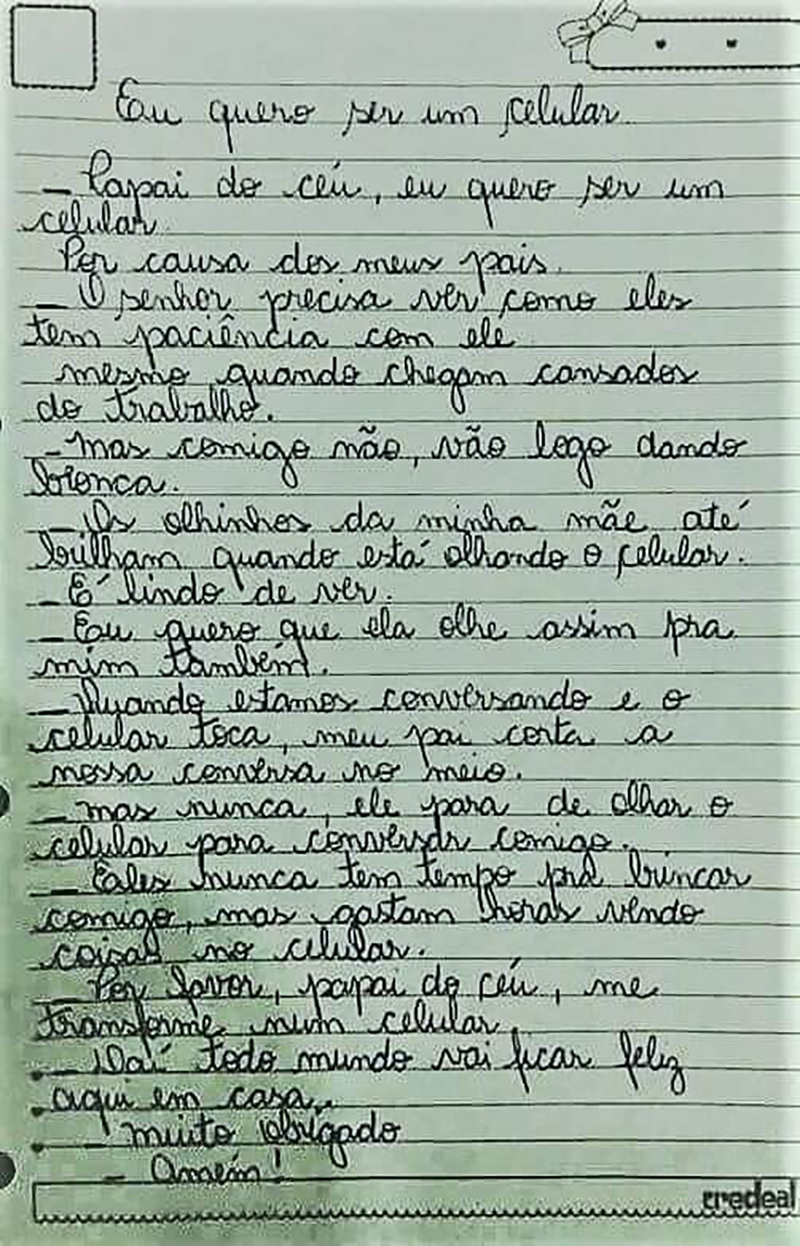 Eu quero ser um celular
- Papai do céu, eu quero ser um
celular.
Por causa dos meus pais.
- O senhor precisa ver como eles
tem paciência com ele
mesmo quando chegam cansados
do trabalho.
- mas comigo não, vão logo dando
bronca.
- Os olhinhos da minha mãe até
brilham quando está olhando o celular.
- É lindo de ver.
- Eu quero que ela olhe assim pra
mim também.
- Quando estamos conversando e o
celular toca, meu pai corta a
nossa conversa no meio.
- mas nunca, ele para de olhar o
celular para conversar comigo.
- Eles nunca tem tempo pra brincar
comigo, mas gastam horas vendo
coisas no celular.
- Por favor, papai do céu, me
transforme num celular,
- Daí todo mundo vai ficar feliz
aqui em casa,.
- muito obrigado
- Amém!
credeal